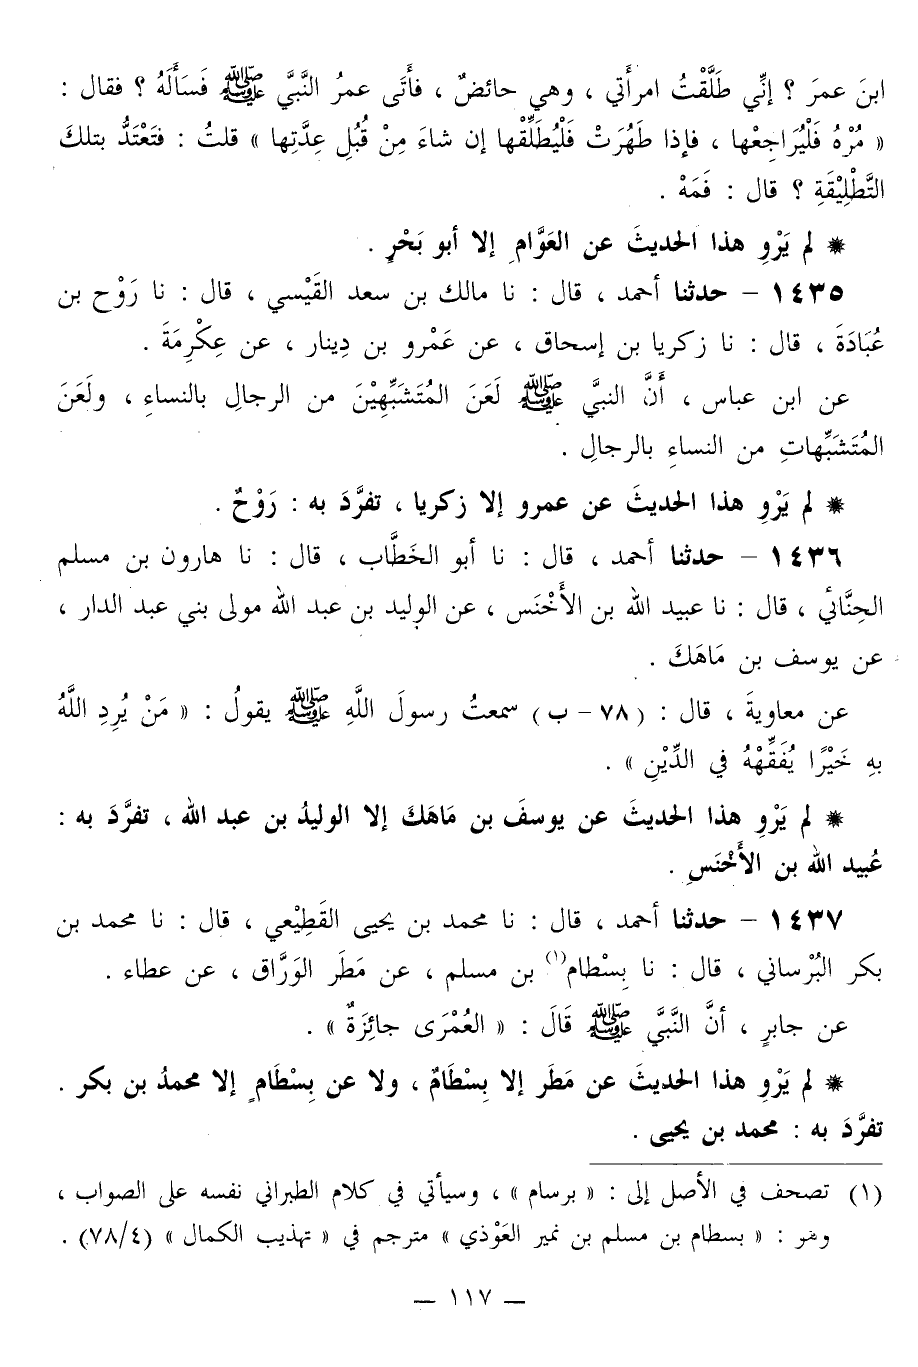 ابنَ عمرَ ؟ إنِّي طَلَّقْتُ امرأَتي ، وهي حائضٌ ، فأَتَى عمرُ النَّبيَّ ﷺ فَسَأَلَهُ ؟ فقال :
« مُرْهُ فَلْيُرَاجِعْها ، فإذا طَهُرَتْ فَلْيُطَلِّقْها إن شاءَ مِنْ قُبُلِ عِدَّتِها » قلتُ : فتَعْتَدُّ بتلكَ
التَّطْلِيْقَةِ ؟ قال : فَمَهْ .
✵ لم يَرْوِ هذا الحديثَ عن العَوَّامِ إلا أبو بَحْرٍ .
١٤٣٥ – حدثنا أحمد ، قال : نا مالك بن سعد القَيْسي ، قال : نا رَوْح بن
عُبَادَةَ ، قال : نا زكريا بن إسحاق ، عن عَمْرو بن دِينار ، عن عِكْرِمَةَ .
عن ابن عباس ، أَنَّ النبيَّ ﷺ لَعَنَ المُتَشَبِّهِيْنَ من الرجالِ بالنساءِ ، ولَعَنَ
المُتَشَبِّهاتِ من النساءِ بالرجالِ .
✵ لم يَرْوِ هذا الحديثَ عن عمرو إلا زكريا ، تفرَّدَ به : رَوْحٌ .
١٤٣٦ – حدثنا أحمد ، قال : نا أبو الخَطَّاب ، قال : نا هارون بن مسلم
الحِنَّائي ، قال : نا عبيد الله بن الأَخْنَس ، عن الوليد بن عبد الله مولى بني عبد الدار ،
عن يوسف بن مَاهَكَ .
عن معاويةَ ، قال : (٧٨ – ب) سمعتُ رسولَ اللَّهِ ﷺ يقولُ : « مَنْ يُرِدِ اللَّهُ
بهِ خَيْرًا يُفَقِّهْهُ في الدِّيْنِ » .
✵ لم يَرْوِ هذا الحديثَ عن يوسفَ بن مَاهَكَ إلا الوليدُ بن عبد الله ، تفرَّدَ به :
عُبيد الله بن الأَخْنَسِ .
١٤٣٧ – حدثنا أحمد ، قال : نا محمد بن يحيى القَطِيْعي ، قال : نا محمد بن
بكر البُرْساني ، قال : نا بِسْطام(١) بن مسلم ، عن مَطَر الوَرَّاق ، عن عطاء .
عن جابرٍ ، أنَّ النَّبيَّ ﷺ قَالَ : « العُمْرَى جائِزَةٌ » .
✵ لم يَرْوِ هذا الحديثَ عن مَطَر إلا بِسْطَامٌ ، ولا عن بِسْطَامٍ إلا محمدُ بن بكر .
تفرَّدَ به : محمد بن يحيى .
(١) تصحف في الأصل إلى : « برسام » ، وسيأتي في كلام الطبراني نفسه على الصواب ،
وهو : « بسطام بن مسلم بن نمير العَوْذي » مترجم في « تهذيب الكمال » (٧٨/٤) .
– ١١٧ –